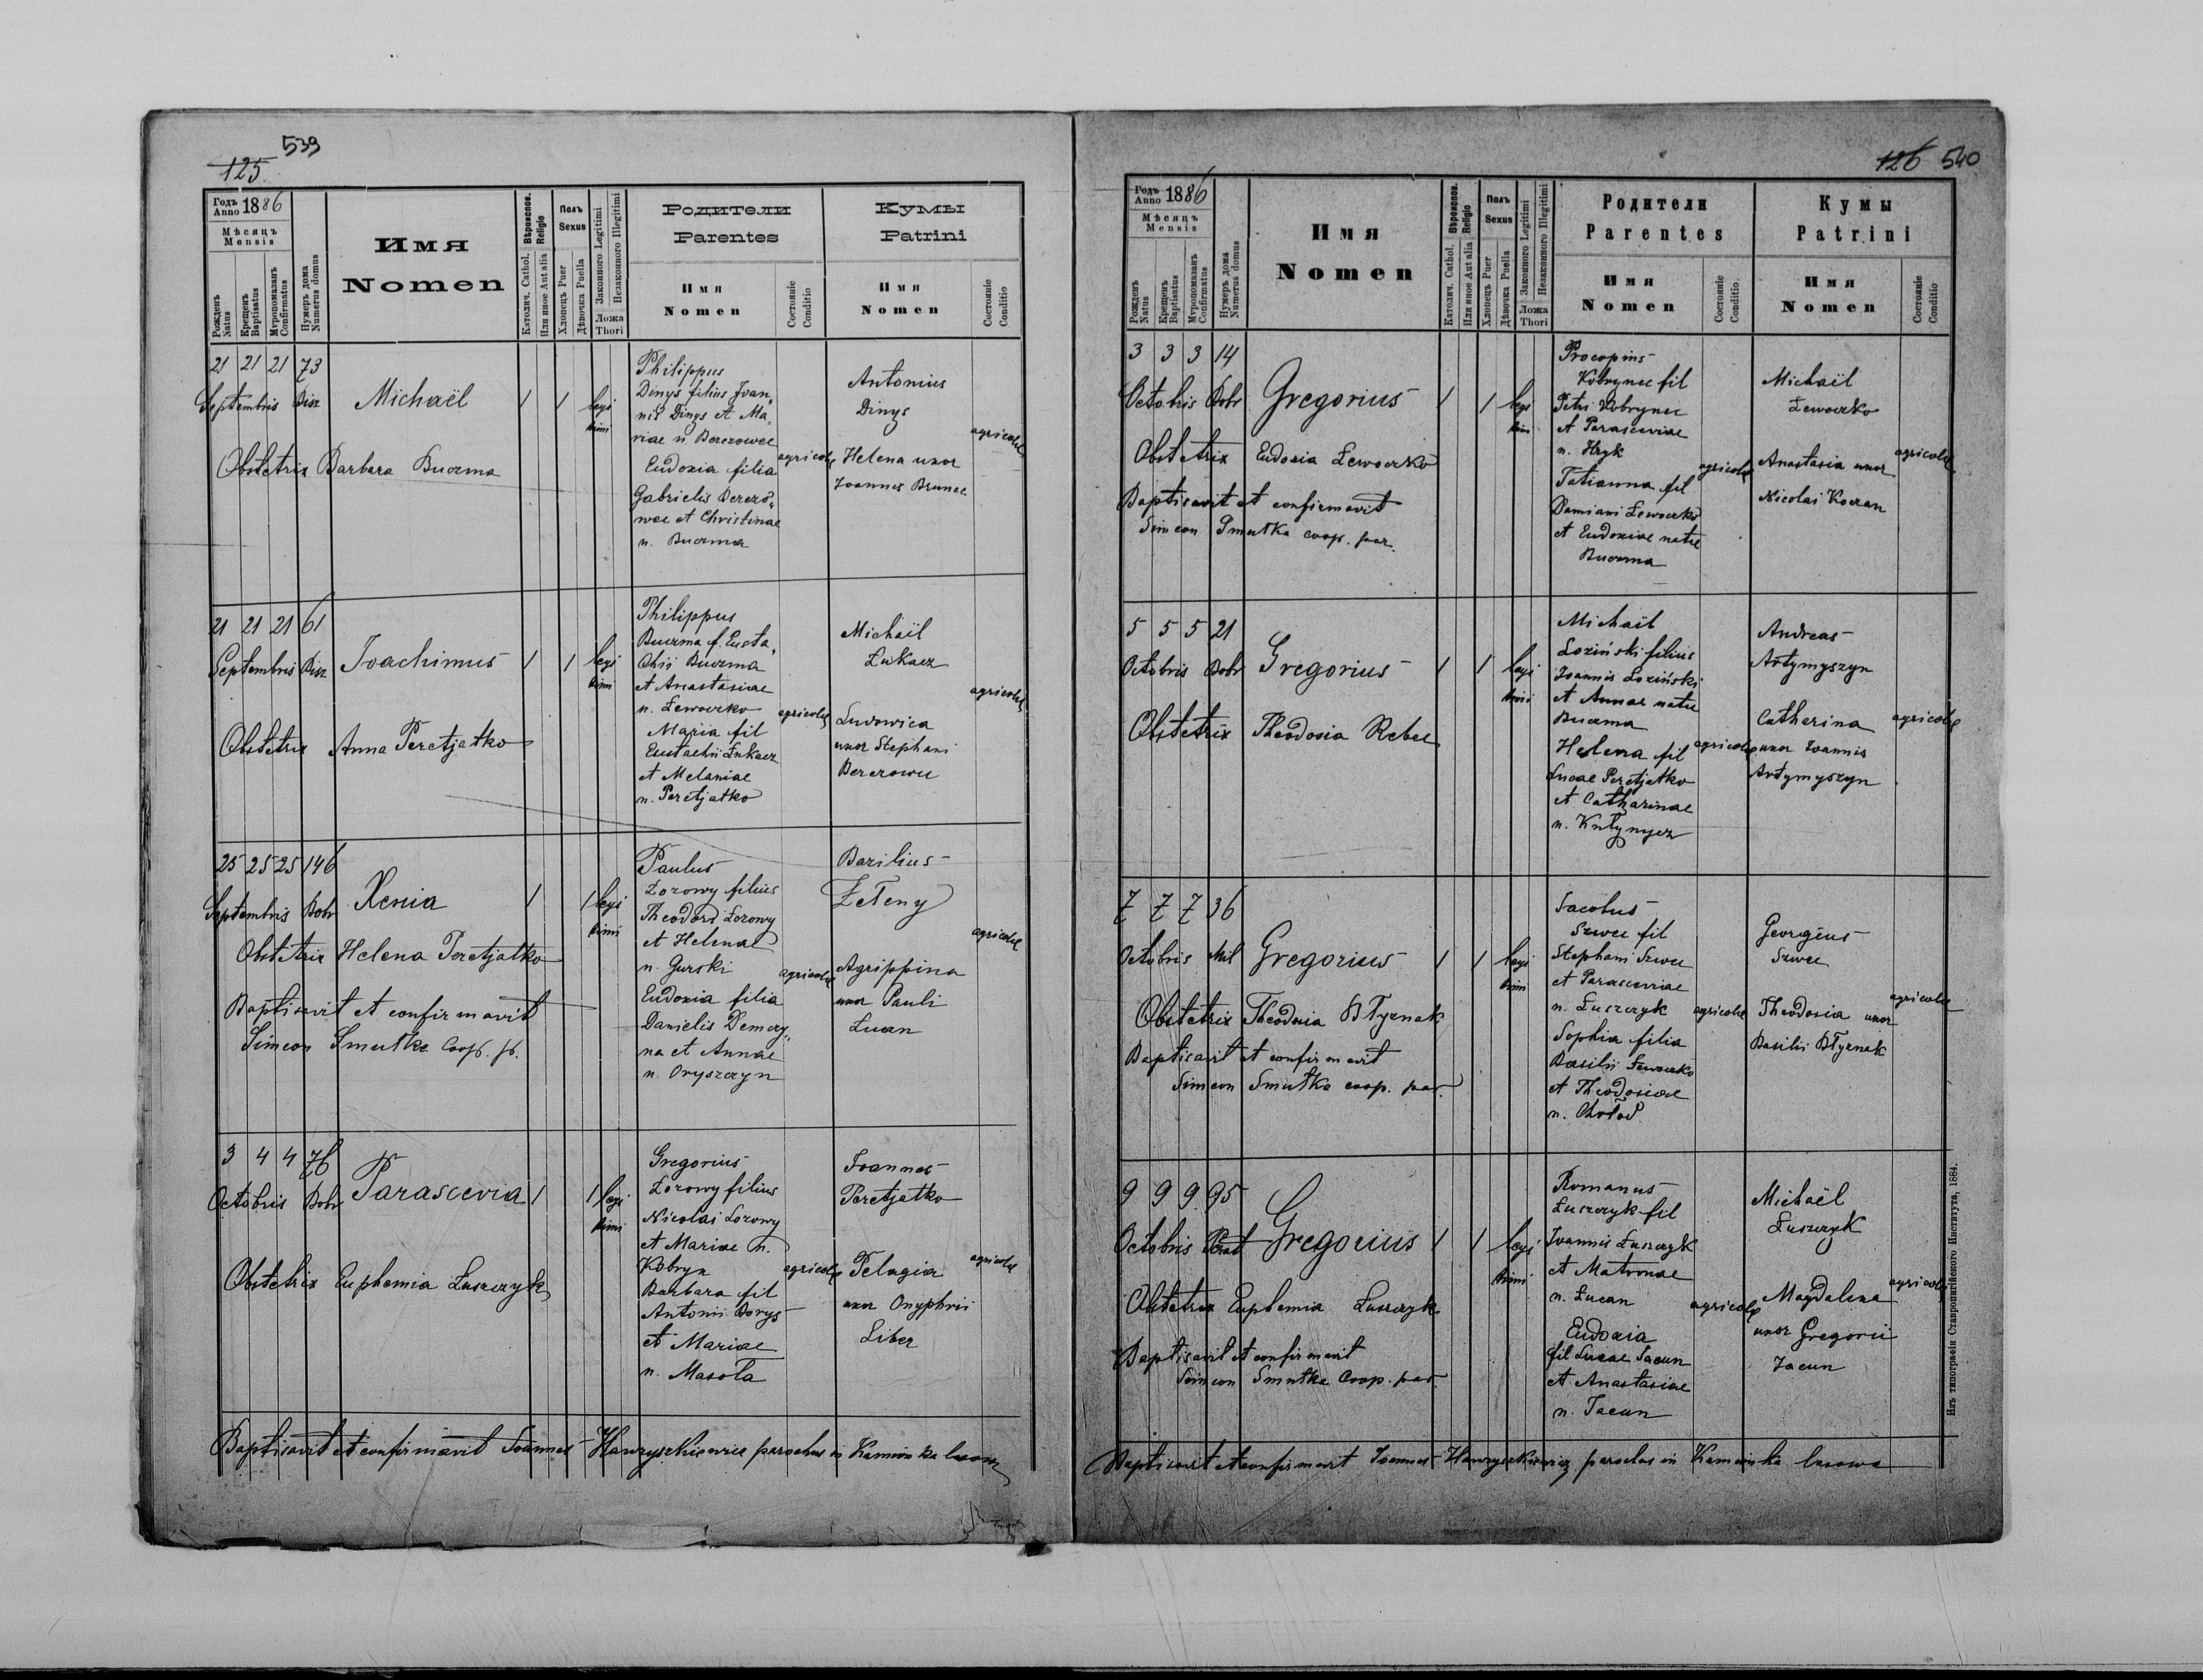 539
125.
Годъ Anno 1886
Мѣсяцъ Mensis
Рожденъ Natus
Крещенъ Baptisatus
Мѵропомазанъ Confirmatus
Нумеръ дома Numerus domus
Имя Nomen
Вѣроиспов. Religio
Католич. Cathol.
Или иное Aut alia
Полъ Sexus
Хлопецъ Puer
Дѣвочка Puella
Законного Legitimi
Незаконного Illegitimi
Ложа Thori
Родители Parentes
Имя Nomen
Состояніе Conditio
Кумы Patrini
Имя Nomen
Состояніе Conditio
21 21 21 73
Septembris
Michaël
1 1 legi
timi
Philippus
Dinys filius Joan„
nis Dinys et Ma„
riae n. Berezowec
Eudoxia filia
Gabrielis Berezo„
wec et Christinae
n. Buczma
agricolae
Antonius
Dinys
Helena uxor
Joannis Brunec
agricolae
Obstetrix Barbara Buczma
21 21 21 61
Septembris
Joachimus
1 1 legi
timi
Philippus
Buczma f. Eusta„
chii Buczma
et Anastasiae
n. Lewoczko
Maria fil
Eustachii Łukacz
et Melaniae
n. Peretjatko
agricolae
Michaël
Łukacz
Ludowica
uxor Stephani
Berezowec
agricolae
Obstetrix Anna Peretjatko
25 25 25 146
Septembris Bobr
Xenia
1 1 legi
timi
Paulus
Łozowy filius
Theodori Łozowy
et Helenae
n. Gurski
Eudoxia filia
Danielis Demczy„
na et Annae
n. Oryszczyn
agricolae
Basilius
Zeleny
Agrippina
uxor Pauli
Łucan
agricolae
Obstetrix Helena Peretjatko
Baptisavit et confirmavit
Simeon Smutka coop. p.
3 4 4 76
Octobris Bobr
Parascevia
1 1 legi
timi
Gregorius
Łozowy filius
Nicolai Łozowy
et Mariae n.
Kobryn
Barbara fil
Antonii Borys
et Mariae
n. Masoła
agricolae
Joannes
Peretjatko
Pelagia
uxor Onyphrii
Liber
agricolae
Obstetrix Euphemia Łuszczyk
Baptisavit et confirmavit Joannes Hawryszkiewicz parochus in Kamionka
126 540
Годъ Anno 1886
Мѣсяцъ Mensis
Рожденъ Natus
Крещенъ Baptisatus
Мѵропомазанъ Confirmatus
Нумеръ дома Numerus domus
Имя Nomen
Вѣроиспов. Religio
Католич. Cathol.
Или иное Aut alia
Полъ Sexus
Хлопецъ Puer
Дѣвочка Puella
Законного Legitimi
Незаконного Illegitimi
Ложа Thori
Родители Parentes
Имя Nomen
Состояніе Conditio.
Кумы Patrini
Имя Nomen
Состояніе Conditio
3 3 3 14
Octobris Bobr
Gregorius
1 1 legi
timi
Procopius
Kobrynec fil
Petri Kobrynec
et Parasceviae
n. Hryk
Tatianna fil
Damiani Lewoczko
et Eudoxiae natae
Buczma
agricolae
Michaël
Lewoczko
Anastasia uxor
Nicolai Koczan
agricolae
Obstetrix Eudoxia Lewoczko
Baptisavit et confirmavit
Simeon Smutka coop. par.
5 5 5 21
Octobris Bobr
Gregorius
1 1 legi
timi
Michaël
Loziński filius
Joannis Loziński
et Annae natae
Buczma
Helena fil
Lucae Peretjatko
et Catharinae
n. Kutynycz
agricolae
Andreas
Artymyszyn
Catherina
uxor Joannis
Artymyszyn
agricolae
Obstetrix Theodosia Rebec
7 7 7 36
Octobris Mil
Gregorius
1 1 legi
timi
Jacobus
Szwec fil
Stephani Szwec
et Parasceviae
n. Łuszczyk
Sophia filia
Basilii Lewoczko
et Theodosiae
n. Chołod
agricolae
Georgius
Szwec
Theodosia uxor
Basilii Błyznak
agricolae
Obstetrix Theodosia Błyznak
Baptisavit et confirmavit
Simeon Smutka coop. par.
9 9 9 95
Octobris
Gregorius
1 1 legi
timi
Romanus
Łuszczyk fil
Joannis Łuszczyk
et Matronae
n. Łucan
Eudoxia
fil Lucae Jacun
et Anastasiae
n. Jacun
agricolae
Michaël
Łuszczyk
Magdalena
uxor Gregorii
Jacun
agricolae
Obstetrix Euphemia Łuszczyk
Baptisavit et confirmavit
Simeon Smutka Coop. par.
Baptisavit et confirmavit Joannes Hawryszkiewicz parochus in Kamionka lasowa
Изъ типографіи Ставропигійского Института, 1884.